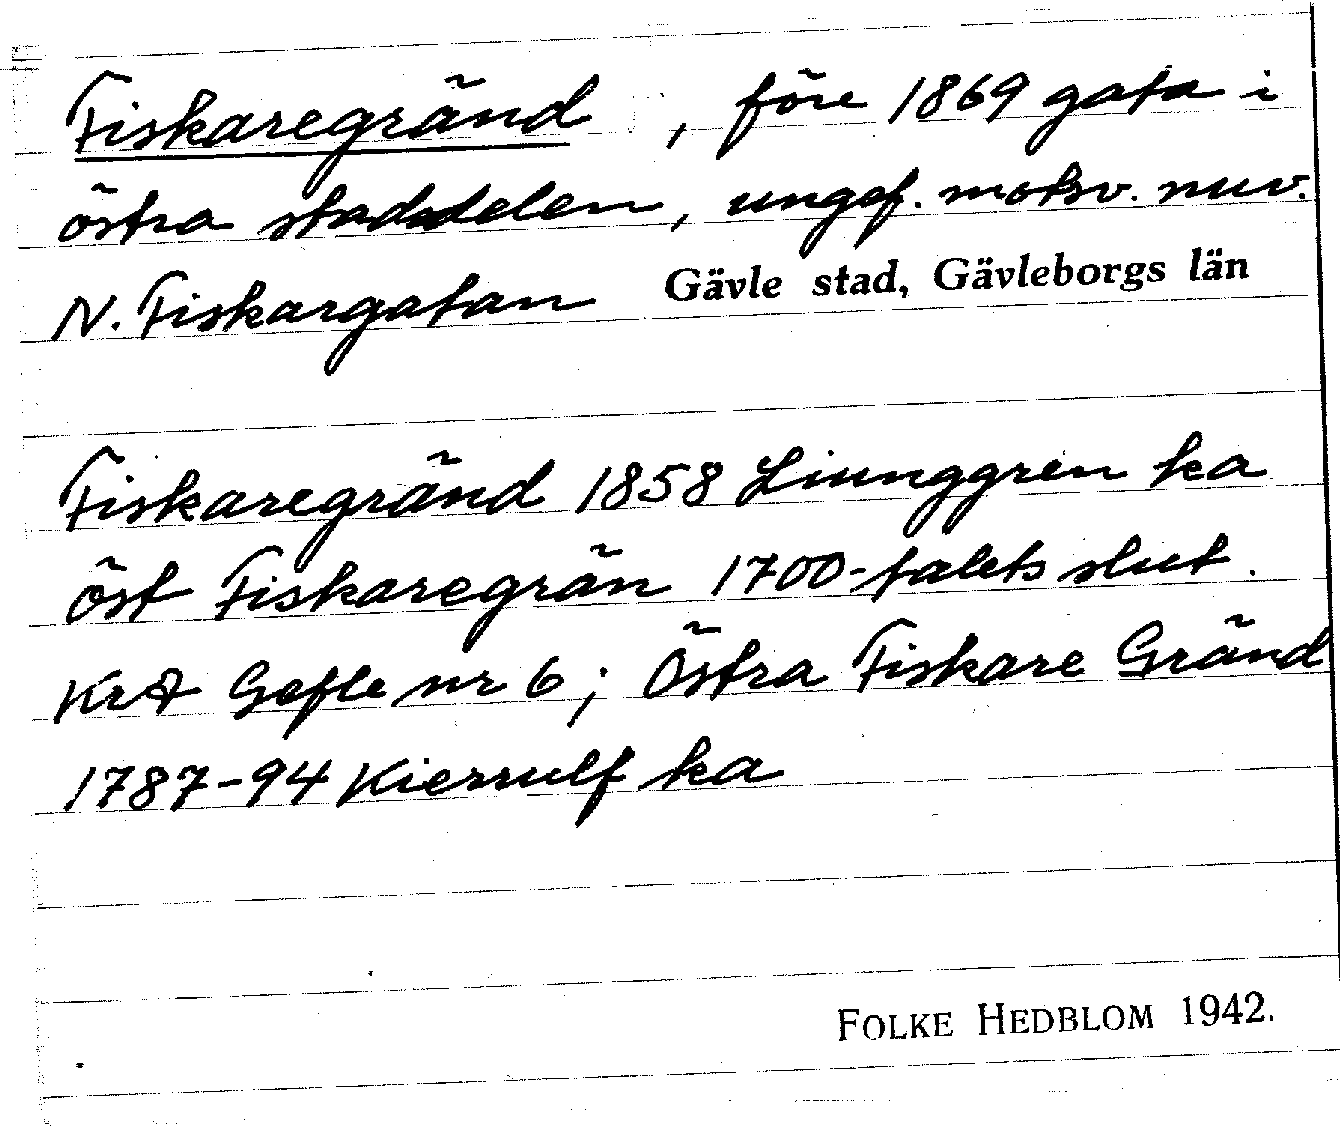 Fiskaregränd, före 1869 gata i
östra stadsdelen, ungef. motsv. nuv.
N. Fiskargatan Gävle stad, Gävleborgs län
Fiskaregränd 1858 Liunggren ka
öst Fiskaregrän 1700-talets slut.
KrA Gefle nr 6; Östra Fiskare Gränd
1787-94 Kierrulf ka
FOLKE HEDBLOM 1942.